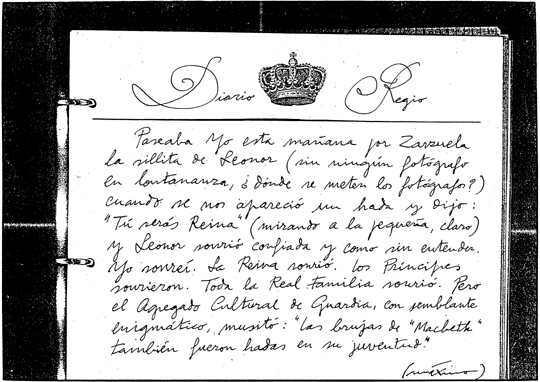 Diario Regio
Paseaba Yo esta mañana por Zarzuela
la sillita de Leonor (sin ningún fotógrafo
en lontananza, ¿dónde se meten los fotógrafos?)
cuando se nos apareció un hada y dijo:
"Tú serás Reina" (mirando a la pequeña, claro)
y Leonor sonrió confiada y como sin entender.
Yo sonreí. La Reina sonrió. Los Príncipes
sonrieron. Toda la Real Familia sonrió. Pero
el Agregado Cultural de Guardia, con semblante
enigmático, musitó: "Las brujas de "Macbeth"
también fueron hadas en su juventud."
(máximo)